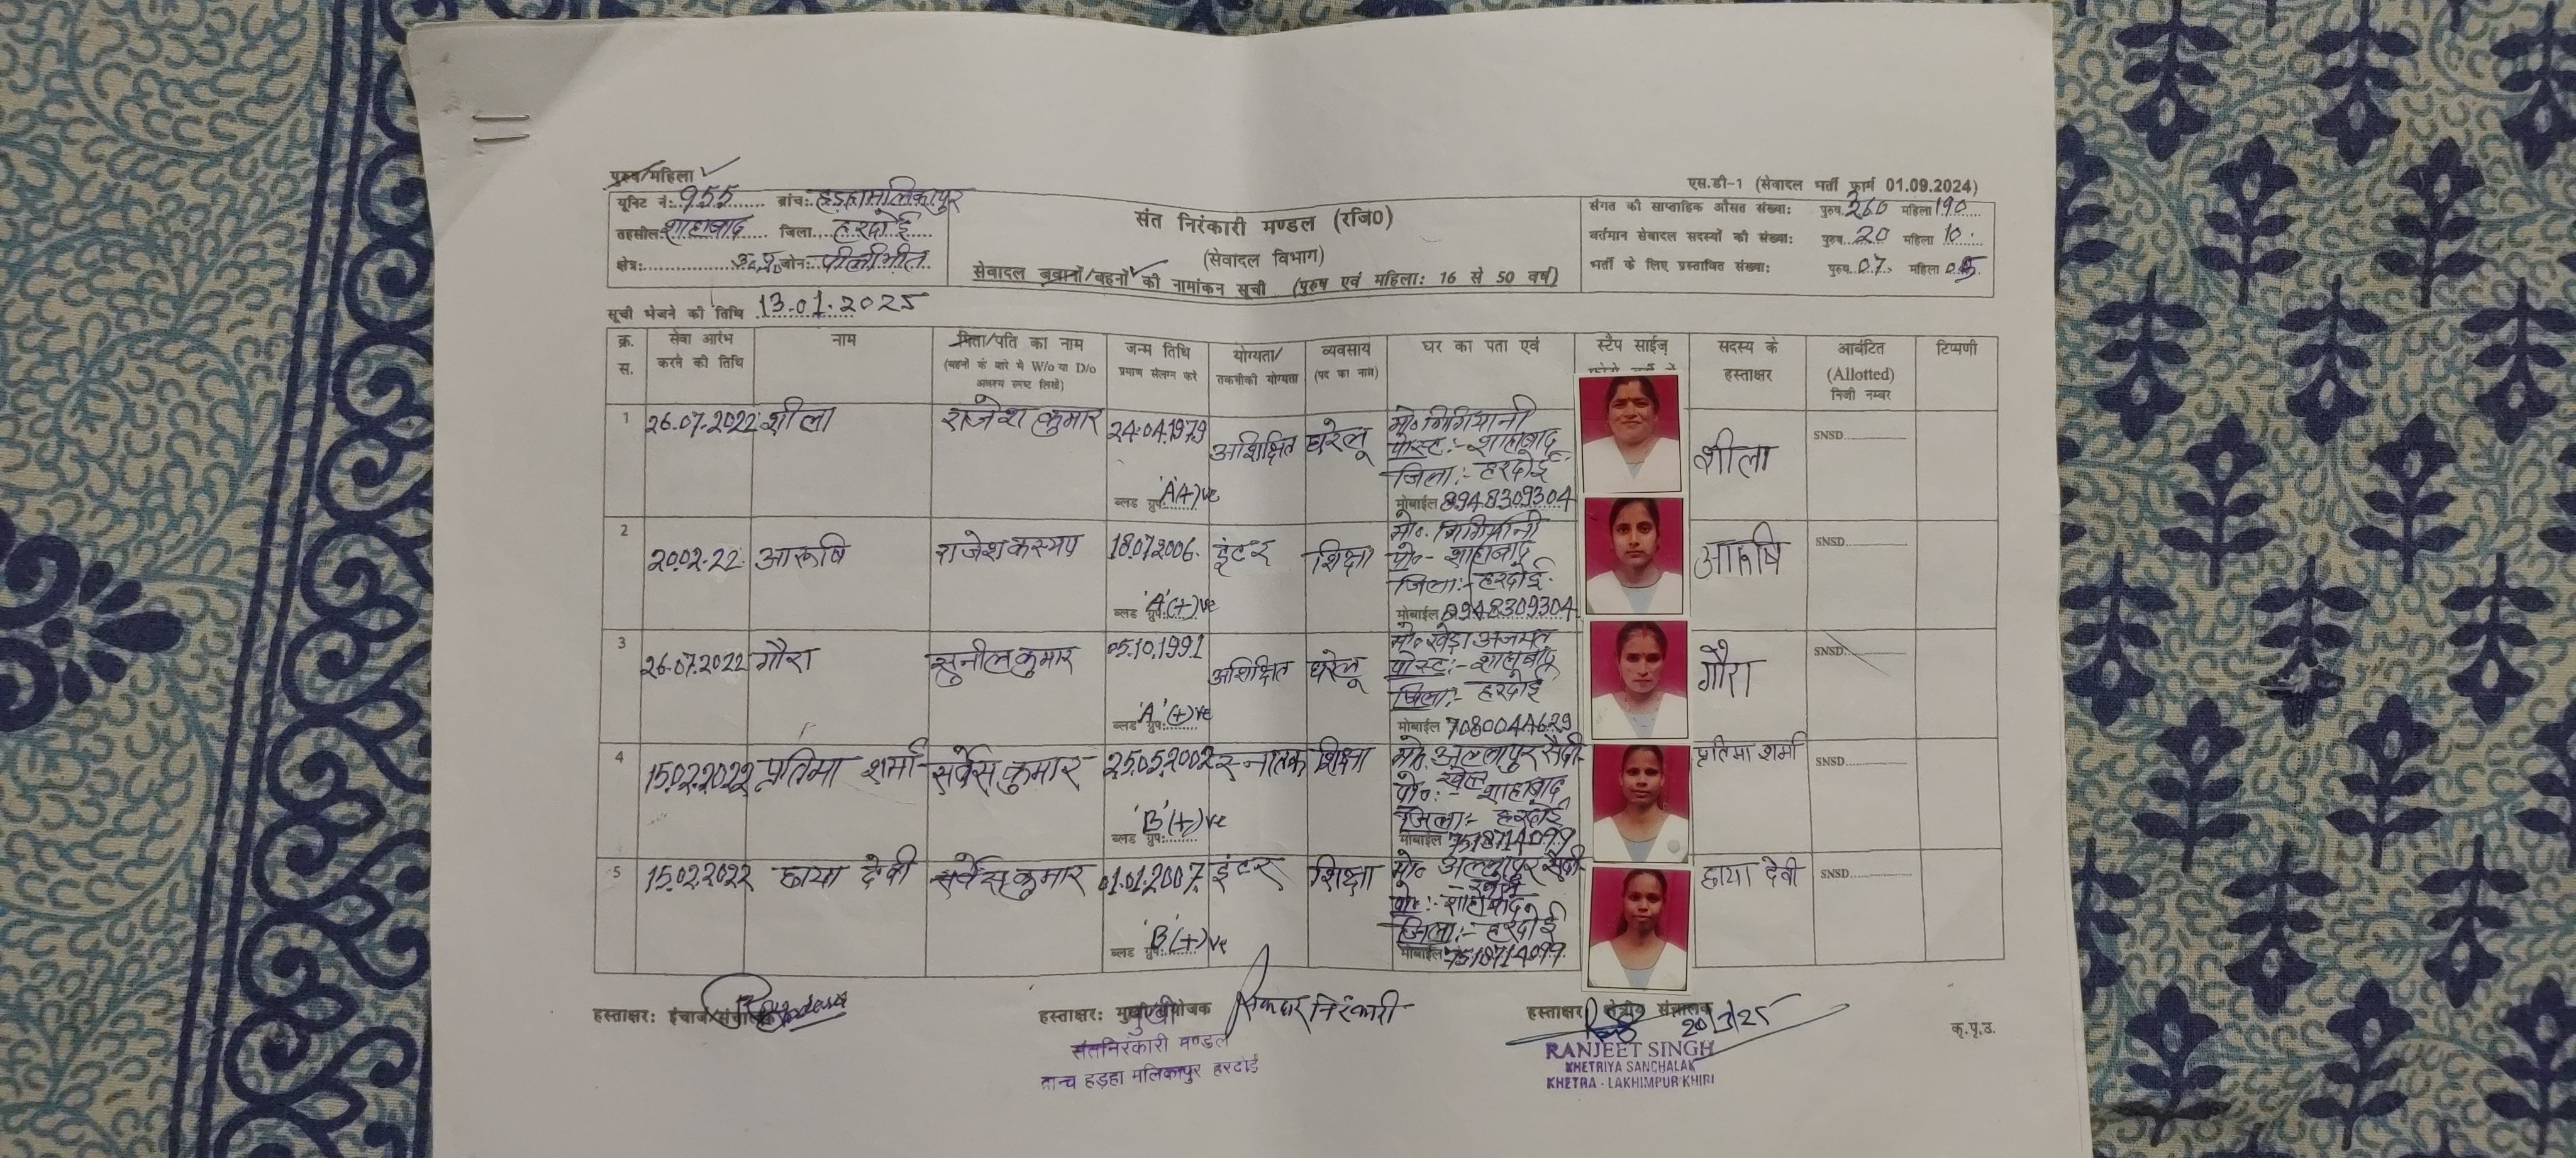 पुरुष/महिला
एस.डी-1 (सेवादल भर्ती फार्म 01.09.2024)
यूनिट नं: 955 ब्रांच: हड़हामलिकापुर
तहसील शाहाबाद जिला हरदोई
क्षेत्र: जोन: पीलीभीत
संत निरंकारी मण्डल (रजि0)
(सेवादल विभाग)
सेवादल जवानों/बहनों की नामांकन सूची (पुरुष एवं महिला: 16 से 50 वर्ष)
संगत की साप्ताहिक औसत संख्या: पुरुष 360 महिला 190
वर्तमान सेवादल सदस्यों की संख्या: पुरुष 20 महिला 10
भर्ती के लिए प्रस्तावित संख्या: पुरुष 07 महिला 05
सूची भेजने की तिथि 13.01.2025
क्र. स. सेवा आरंभ करने की तिथि नाम पिता/पति का नाम (बहनों के बारे में W/o या D/o अवश्य स्पष्ट लिखें) जन्म तिथि प्रमाण संलग्न करें योग्यता/ तकनीकी योग्यता व्यवसाय (पद का नाम) घर का पता एवं स्टैप साईज़ सदस्य के हस्ताक्षर आबंटित (Allotted) निजी नम्बर टिप्पणी
1 26.07.2022 शीला राजेश कुमार 24.04.1979 अशिक्षित घरेलू मो० गिगियानी
पोस्ट:- शाहाबाद
जिला:- हरदोई
ब्लड ग्रुप: 'A'(+)ve मोबाईल 8948309304
शीला SNSD
2 20.02.22 आरूषि राजेश कस्यप 18.07.2006 इंटर शिक्षा मो० गिगियानी
पो०- शाहाबाद
जिला:- हरदोई
ब्लड ग्रुप: 'A'(+)ve मोबाईल 8948309304
आरूषि SNSD
3 26.07.2022 गौरा सुनील कुमार 05.10.1991 अशिक्षित घरेलू मो० खेड़ा अजमत
पोस्ट:- शाहाबाद
जिला:- हरदोई
ब्लड ग्रुप: 'A'(+)ve मोबाईल 7080044629
गौरा SNSD
4 15.02.2022 प्रतिमा शर्मा सर्वेस कुमार 25.05.2002 स्नातक शिक्षा मो० अल्लापुर सैदी
खेल
पो०:- शाहाबाद
जिला:- हरदोई
ब्लड ग्रुप: 'B'(+)ve मोबाईल
प्रतिमा शर्मा SNSD
5 15.02.2022 छाया देवी सर्वेस कुमार 01.01.2007 इंटर शिक्षा मो० अल्लापुर सैदी
खेल
पो०:- शाहाबाद
जिला:- हरदोई
ब्लड ग्रुप: 'B'(+)ve मोबाईल
छाया देवी SNSD
हस्ताक्षर: इंचार्ज/संचालक
हस्ताक्षर: मुखी/संयोजक निरंकारी
हस्ताक्षर क्षेत्रीय संचालक
मुखी
संतनिरंकारी मण्डल
ब्रान्च हड़हा मलिकापुर हरदोई
RANJEET SINGH
KHETRIYA SANCHALAK
KHETRA - LAKHIMPUR KHIRI
क.पृ.उ.